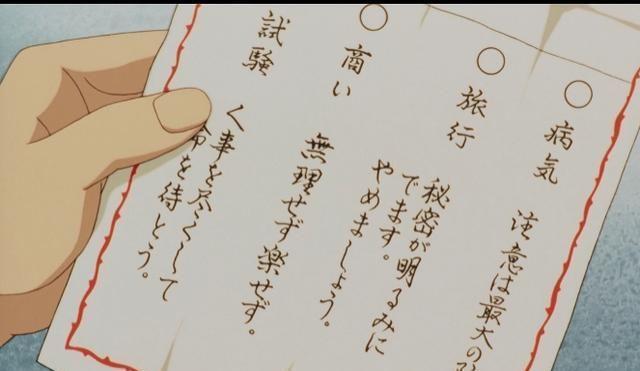 ○ 病気 注意は最大の
○ 旅行 秘密が明るみに
でます。
やめましょう。
○ 商い 無理せず楽せず。
試験 人事を尽くして
命を待とう。